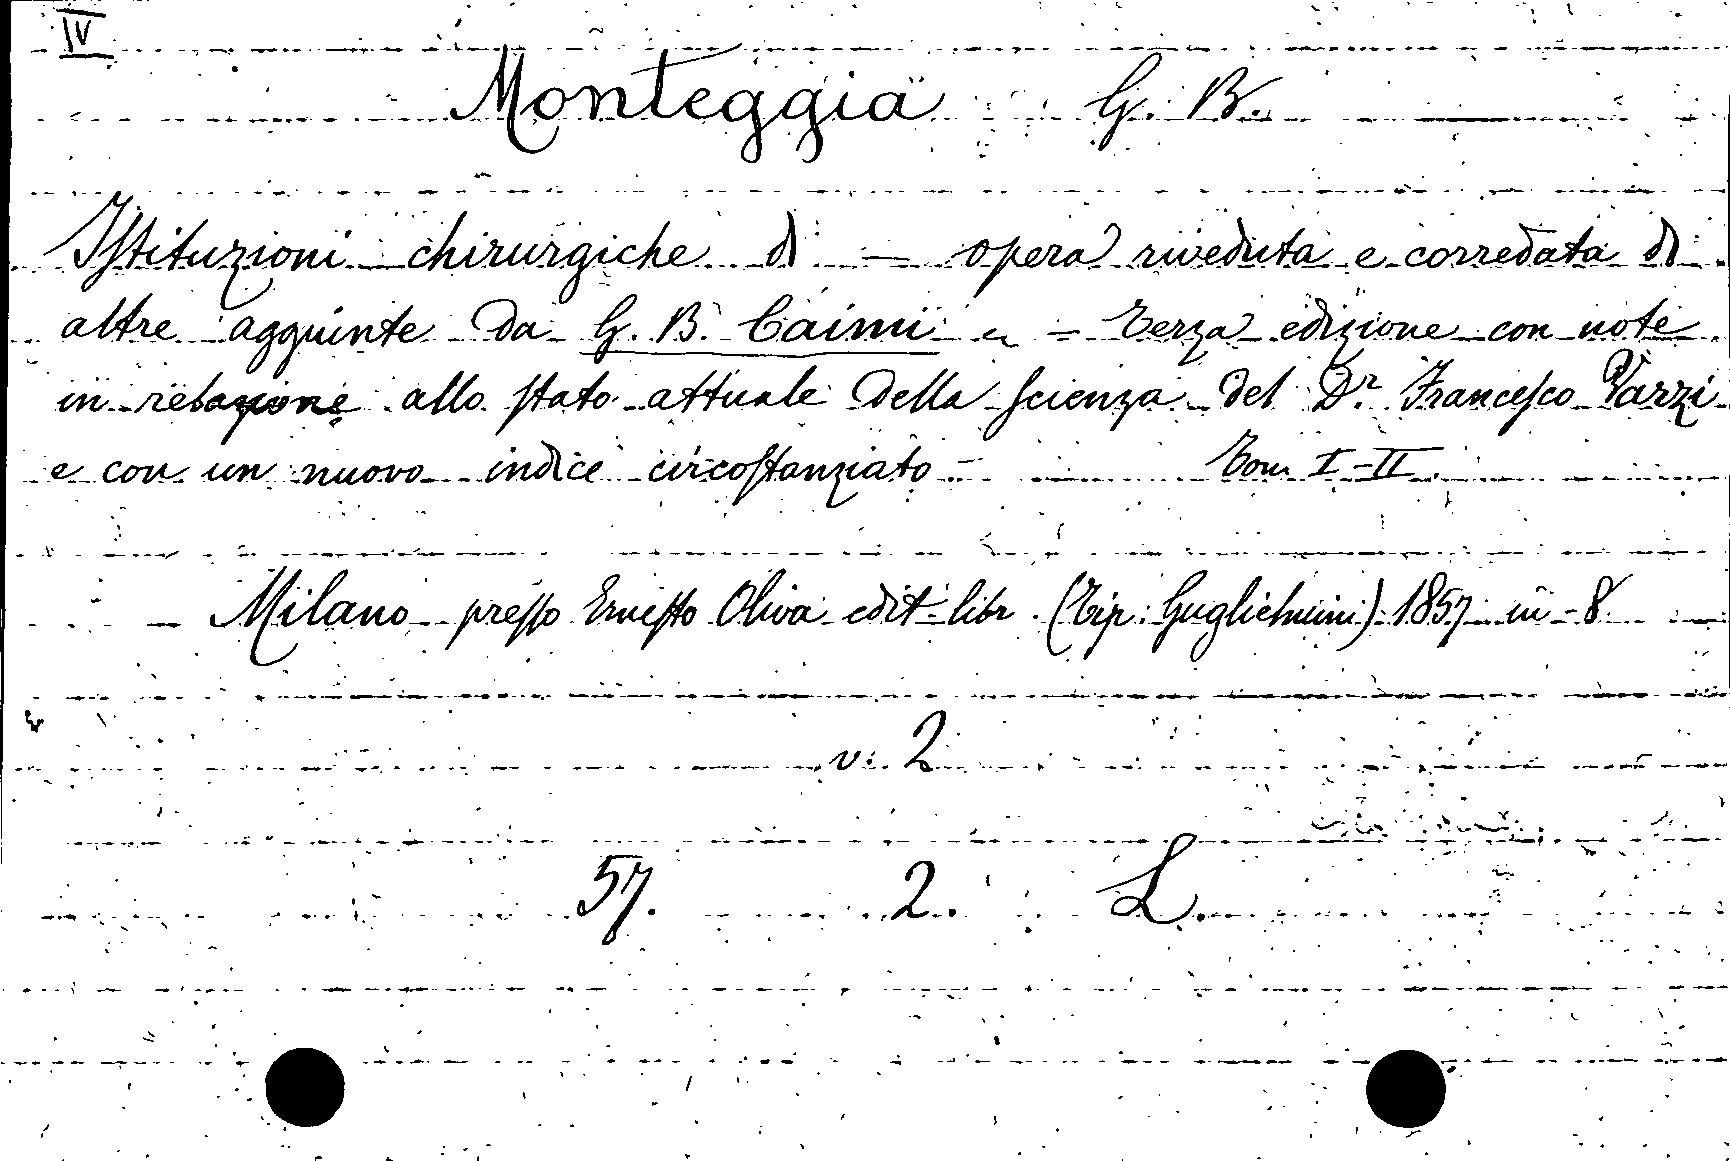 IV
Monteggia G. B.
Istituzioni chirurgiche di — opera riveduta e corredata di
altre aggiunte da G. B. Caimi — terza edizione con note
in relazione allo stato attuale della scienza del Dr. Francesco Parzi
e con un nuovo indice circostanziato — Tom I-II.
— Milano presso Ernesto Oliva edit-libr. (Tip. Guglielmini) 1857 in-8
v. 2
57. 2. L.